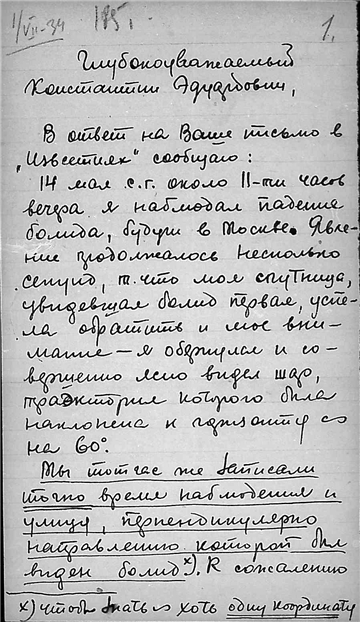 1/VII-34 195. 1.
Глубокоуважаемый
Константин Эдуардович,
В ответ на Ваше письмо в
„Известиях" сообщаю:
14 мая с.г. около 11-ти часов
вечера я наблюдал падение
болида, будучи в Москве. Явле-
ние продолжалось несколько
секунд, т.что моя спутница,
увидевшая болид первая, успе-
ла обратить и мое вни-
мание — я обернулся и со-
вершенно ясно видел шар,
траектория которого была
наклонена к горизонту
на 60°.
Мы тотчас же записали
точно время наблюдения и
улицу, перпендикулярно
направлению которой был
виден болид x). К сожалению
x) чтобы знать хоть одну координату